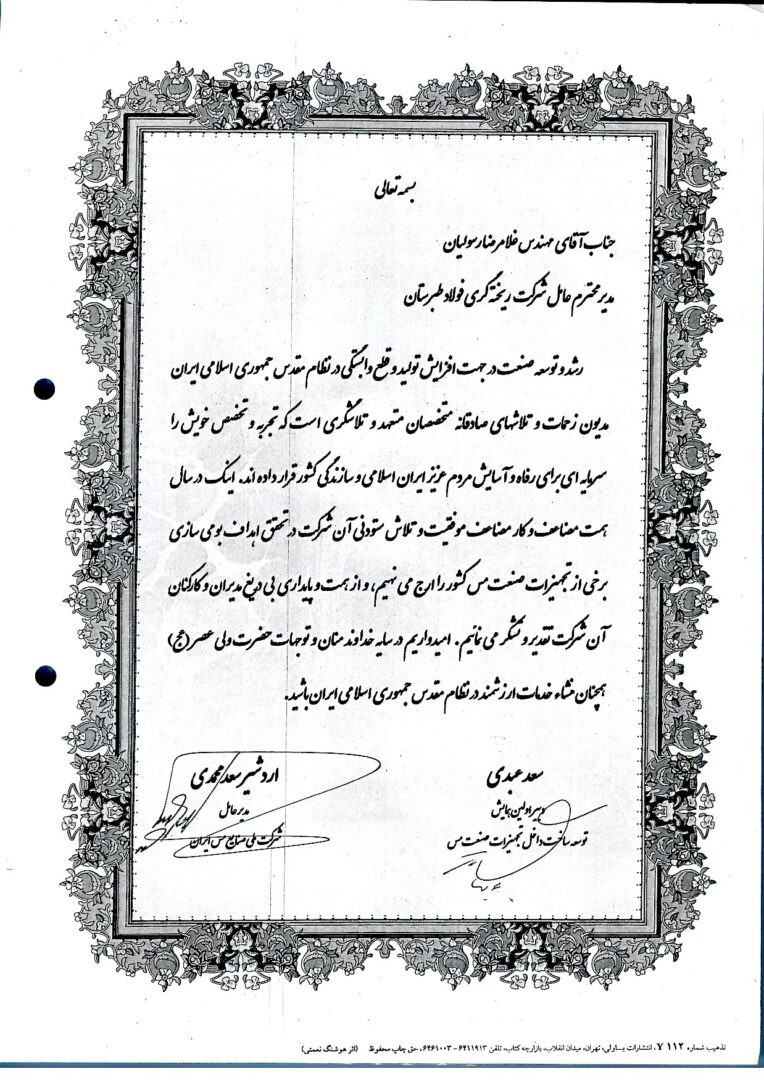 بسمه تعالی
جناب آقای مهندس غلامرضا رسولیان
مدیر محترم عامل شرکت ریخته گری فولاد طبرستان
رشد و توسعه صنعت در جهت افزایش تولید و قطع وابستگی در نظام مقدس جمهوری اسلامی ایران
مدیون زحمات و تلاشهای صادقانه متخصصان متعهد و تلاشگری است که تجربه و تخصص خویش را
سرمایه ای برای رفاه و آسایش مردم عزیز ایران اسلامی و سازندگی کشور قرار داده اند. اینک در سال
همت مضاعف و کار مضاعف موفقیت و تلاش ستودنی آن شرکت در تحقق اهداف بومی سازی
برخی از تجهیزات صنعت مس کشور را ارج می نهیم، و از همت و پایداری بی دریغ مدیران و کارکنان
آن شرکت تقدیر و تشکر می نمائیم. امیدواریم در سایه خداوند منان و توجهات حضرت ولی عصر (عج)
همچنان منشاء خدمات ارزشمند در نظام مقدس جمهوری اسلامی ایران باشید.
سعد عبدی
دبیر اولین همایش
توسعه ساخت داخل تجهیزات صنعت مس
اردشیر سعدمحمدی
مدیرعامل
شرکت ملی صنایع مس ایران
تذهیب شماره ۱۱۲ ۷، انتشارات یساولی، تهران، میدان انقلاب، بازارچه کتاب، تلفن ۶۴۱۱۹۱۳ - ۶۴۶۱۰۰۳، حق چاپ محفوظ (اثر هوشنگ نعمتی)